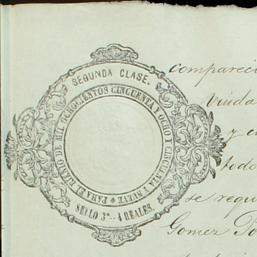 SEGUNDA CLASE.
PARA EL BIENIO DE MIL OCHOCIENTOS CINCUENTA Y OCHO Y CINCUENTA Y NUEVE
SELLO 3º.. 4 REALES.
compareci
Viuda
y
todo
se requi
Gomez